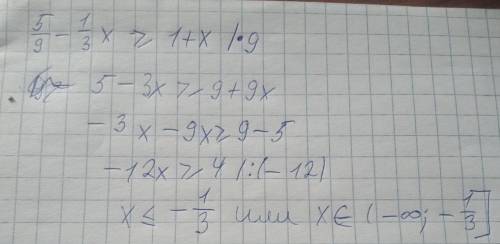 5/9 - 1/3 x ≥ 1+x |·9
5 - 3x ≥ 9 + 9x
-3x - 9x ≥ 9 - 5
-12x ≥ 4 |:(-12)
x ≤ -1/3 или x ∈ (-∞; -1/3]